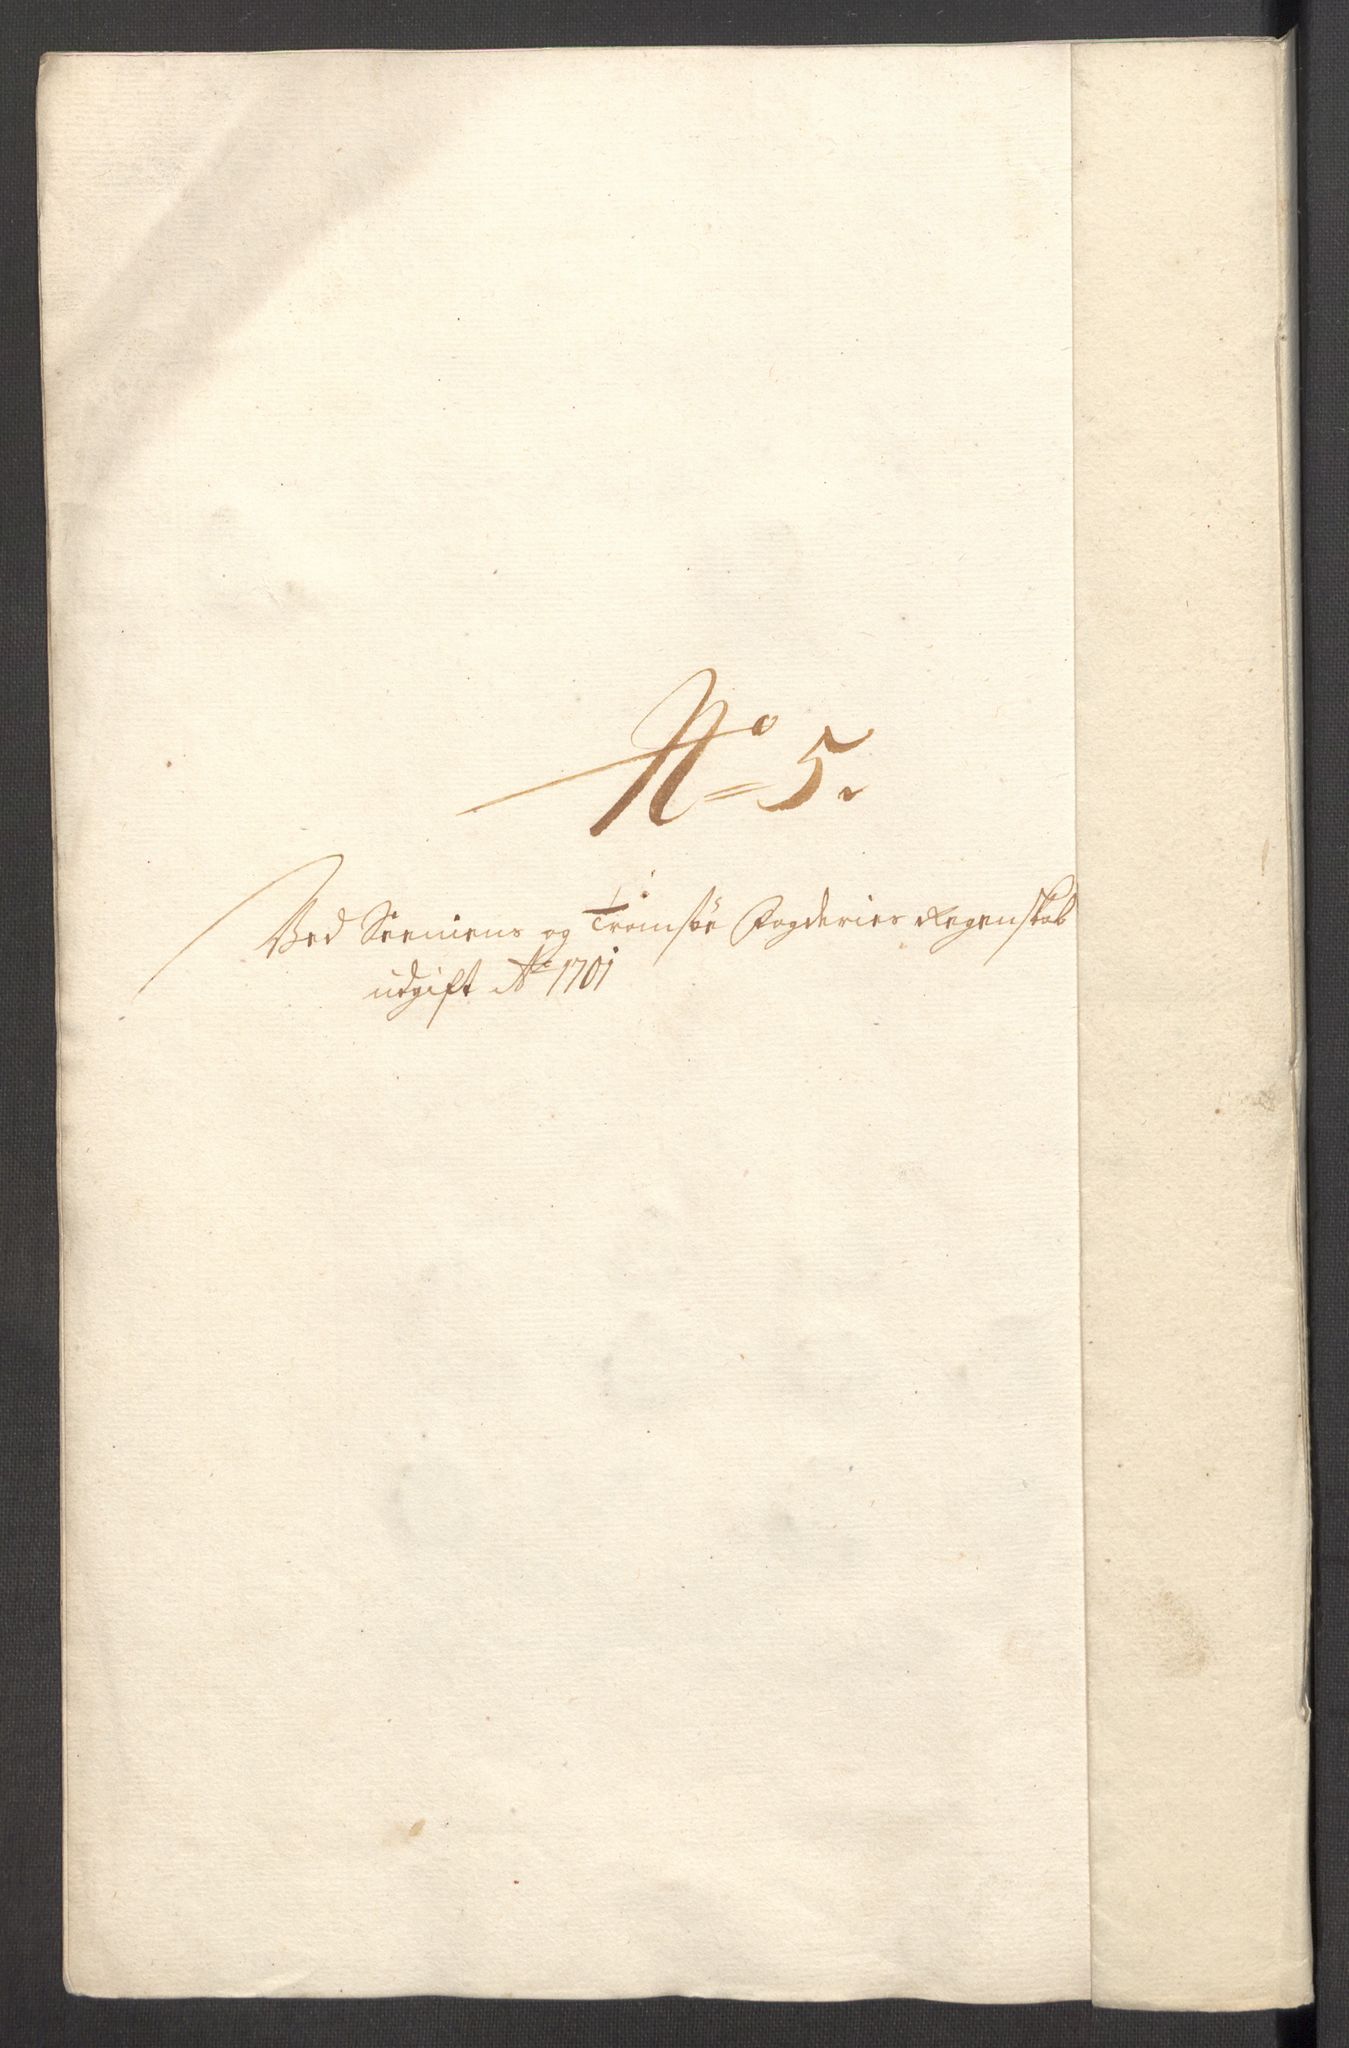 No 5.
Ved Senniens og Tromsöe Fogderies Regenskab
udgift Ao 1701